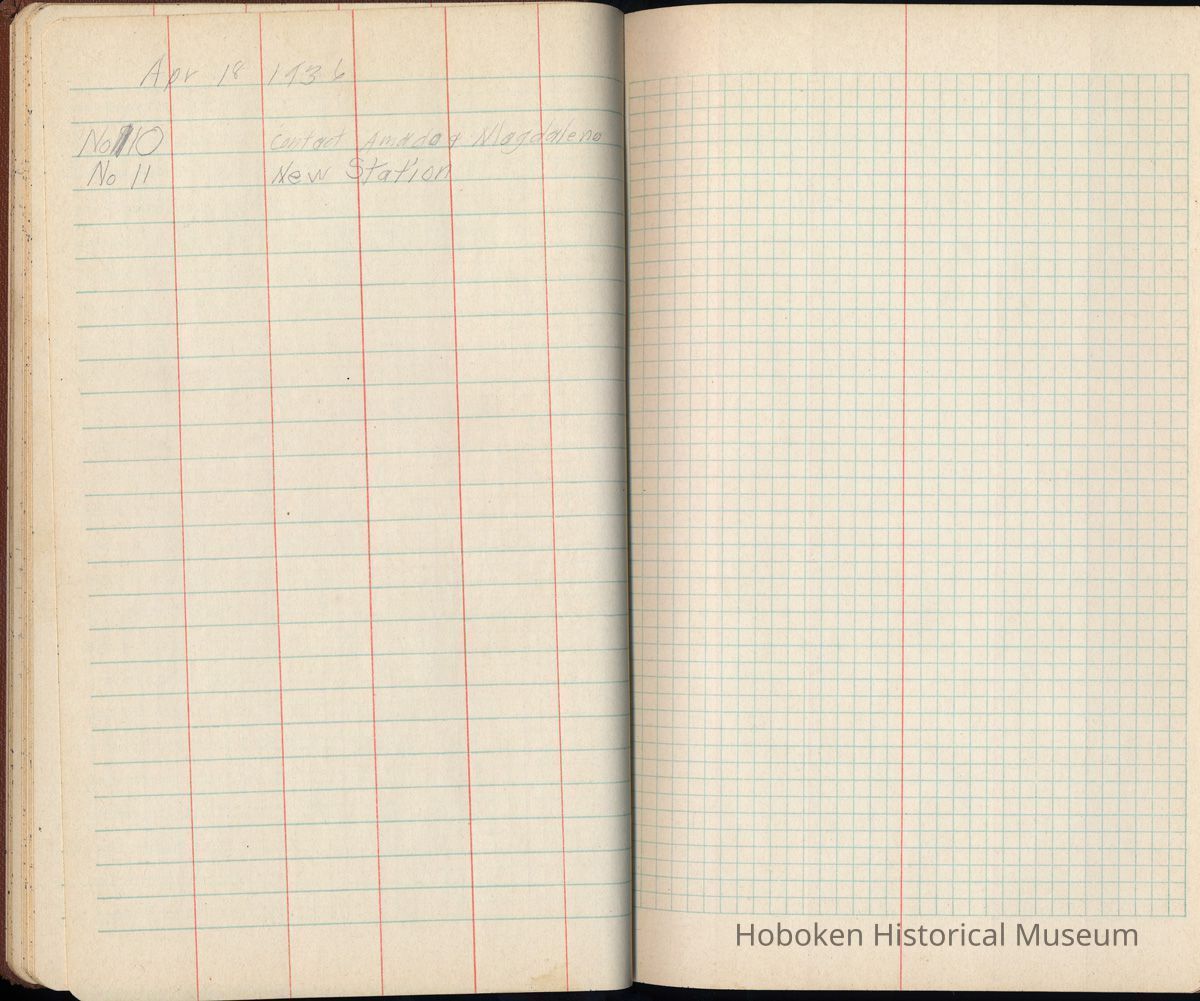 Apr 18 1936
No 10 Contact Amador Magdalena
No 11 New Station
Hoboken Historical Museum